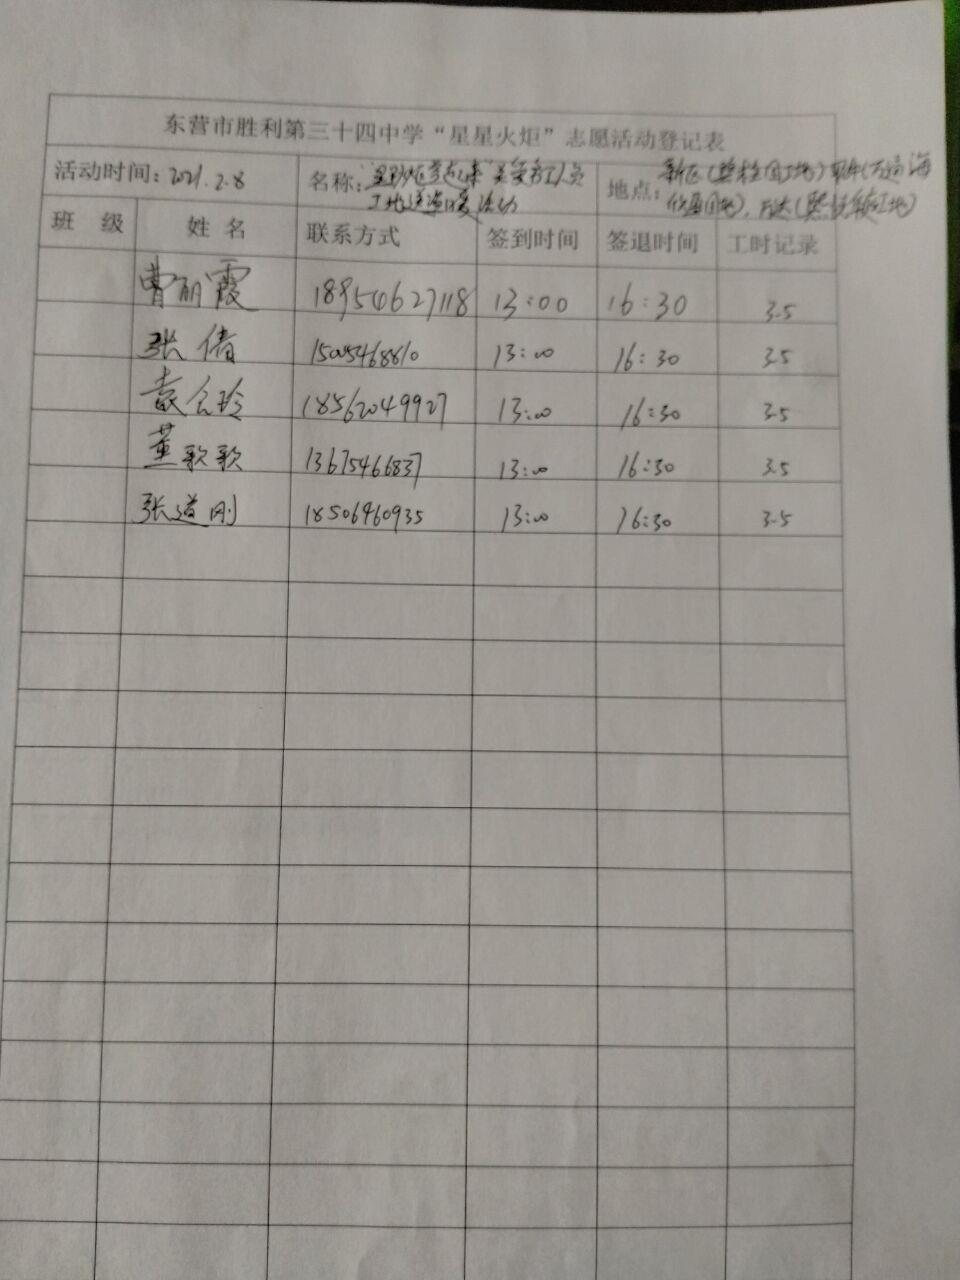 东营市胜利第三十四中学“星星火炬”志愿活动登记表
活动时间：2021.2.8 名称： 工地送温暖活动 地点：新区
班 级 姓 名 联系方式 签到时间 签退时间 工时记录
曹丽霞 18954627118 13:00 16:30 3.5
张倩 15005468810 13:00 16:30 3.5
袁会玲 18562049927 13:00 16:30 3.5
董歌歌 13675466837 13:00 16:30 3.5
张道刚 18506460935 13:00 16:30 3.5